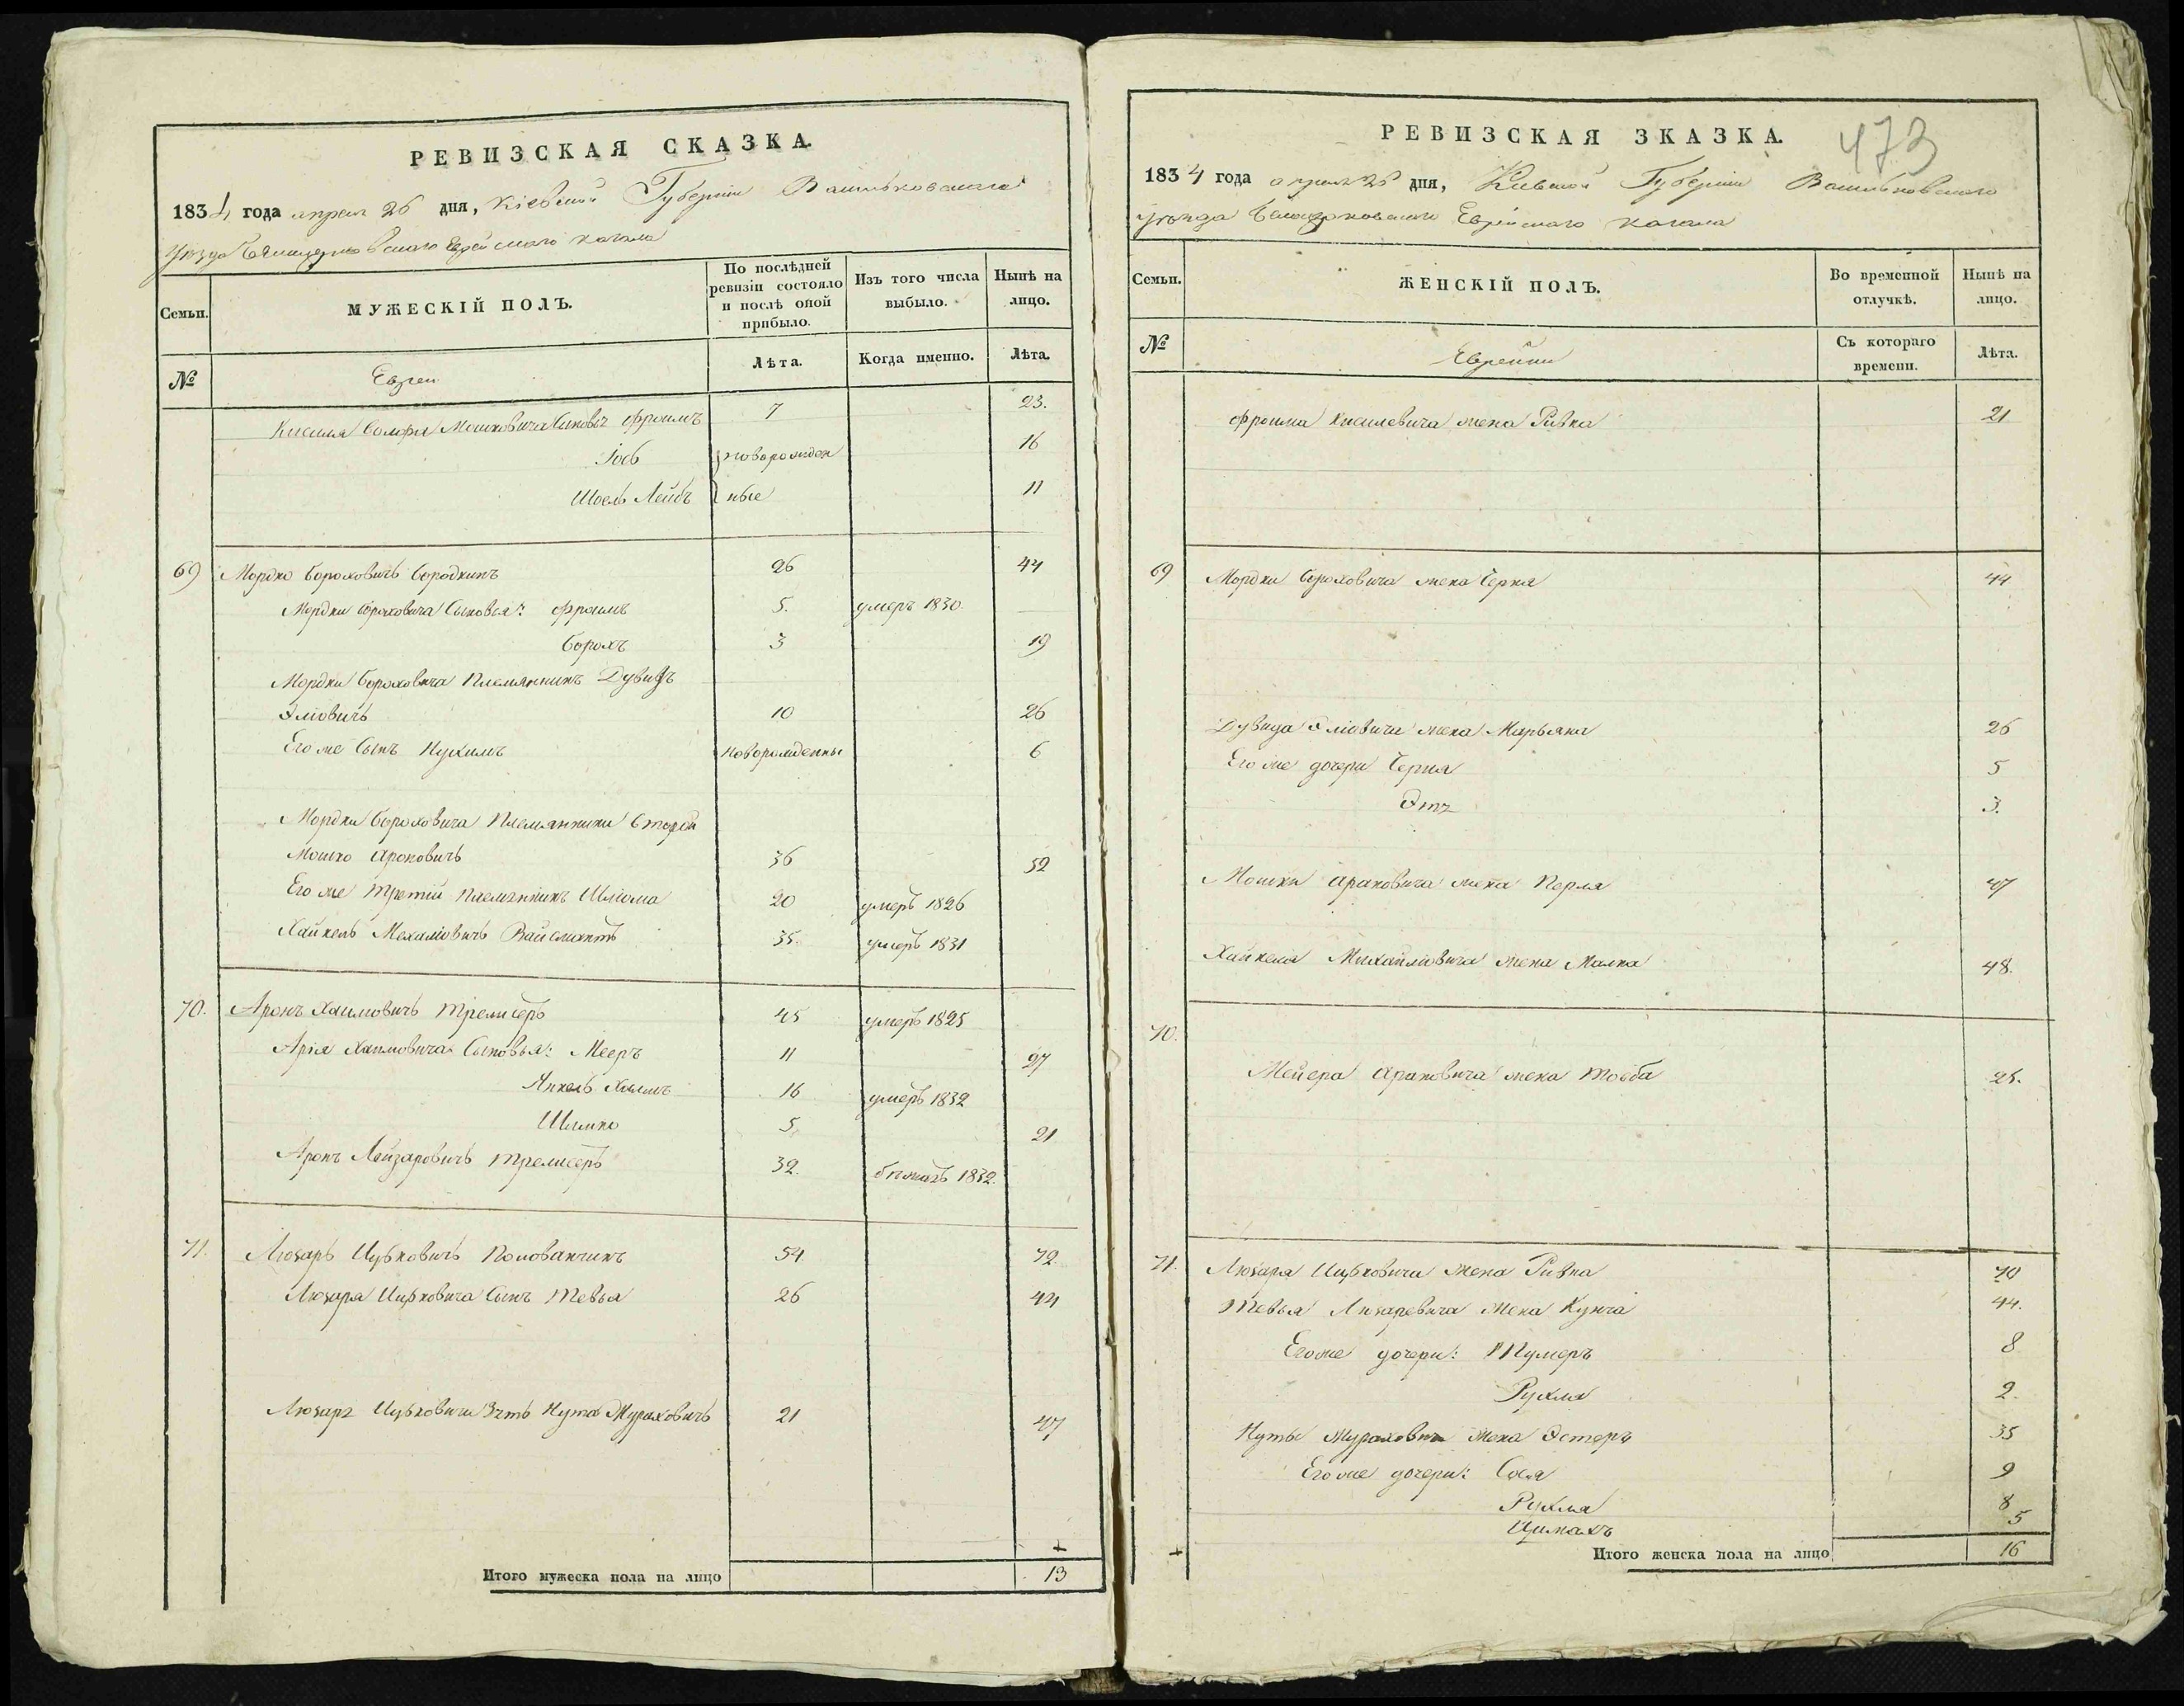 РЕВИЗСКАЯ СКАЗКА.
1834 года апреля 26 дня, Кіевской Губерніи Васильковскаго
Уезда Белоцерковскаго Еврейскаго кагала
Семьи.
МУЖЕСКІЙ ПОЛЪ.
По послѣдней ревизіи состояло и послѣ оной прибыло.
Изъ того числа выбыло.
Нынѣ на лицо.
№
Евреи
Лѣта.
Когда именно.
Лѣта.
Киселя Мошковича Синовья Фроимъ 7 23.
Іось новорожден 16
Шоель Лейбъ ные 11
69 Мордко Бороховичь Бородкинъ 26 44
Мордки Бороховича Сыновья: Фроимъ 5. умеръ 1830
Борохъ 3 19
Мордки Бороховича Племянникъ Дувидъ
Эліовичь 10 26
Его же Сынъ Нухимъ новорожденны 6
Мордки Бороховича Племянники Второй
Мошко Ароновичь 36 52
Его же Третій племянникъ Шліома 20 умеръ 1826
Хайкель 35. умеръ 1831
70. Аронъ Хаимовичь Тремисеръ 45 умеръ 1825
Хаимовича Сыновья: Мееръ 11 27
Янкель Хаимъ 16 умеръ 1832
Шимко 5. 21
Аронъ Лейзаровичь Тремисеръ 32. бежалъ 1832.
71. Люзаръ Ицковичь Полованчикъ 54 72.
Люзаря Ицковича Сынъ Тевья 26 44
Люзара Ицковича Зять Нута 21 47
Итого мужеска пола на лицо 13
473
РЕВИЗСКАЯ ЗКАЗКА.
1834 года апреля 26 дня, Киевской Губерніи Васильковскаго
уезда Белоцерковскаго Еврейскаго кагала
Семьи.
ЖЕНСКІЙ ПОЛЪ.
Во временной отлучкѣ.
Нынѣ на лицо.
№
Еврейки
Съ котораго времени.
Лѣта.
Фроима Киселевича жена Ривка 21
69 Мордки Бороховича жена Черня 44
Дувида Эліовича жена Марьяна 26
Его же дочери Черня 5
3.
Мошки Ароновича жена Перля 47
Хайкеля жена Малка 48.
70.
Мейера Ароновича жена Тоба 25.
71. Люзаря Ицковича жена Ривка 70
Тевья Люзаревича жена Кунча 44.
Его же дочери: 8
Рухля 2.
Нуты жена Эстеръ 35
Его же дочери: Сося 9
Рухля 8
5
Итого женска пола на лицо 16